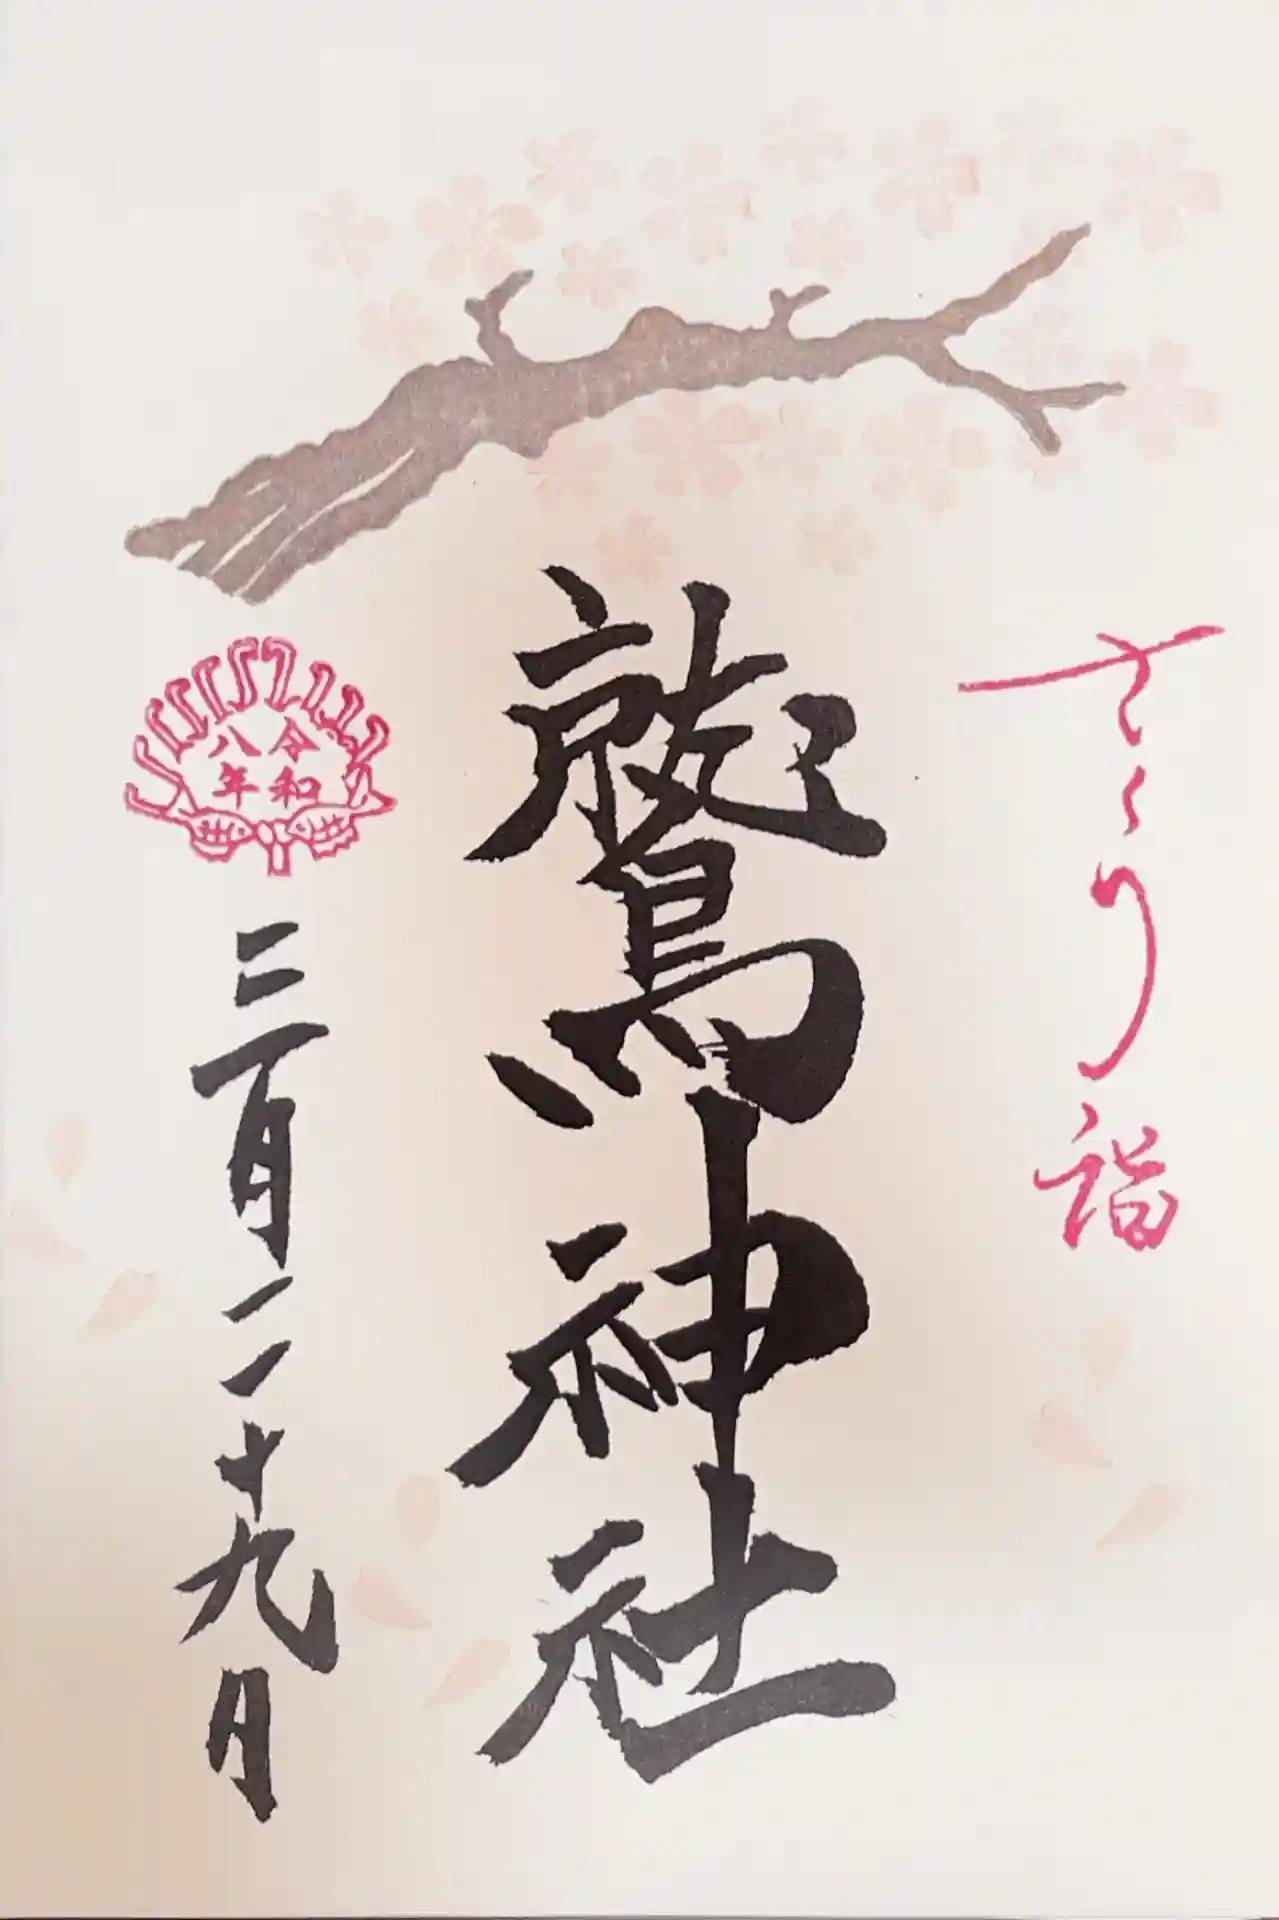 さくら詣
鷲神社
令和
八年
三月二十九日